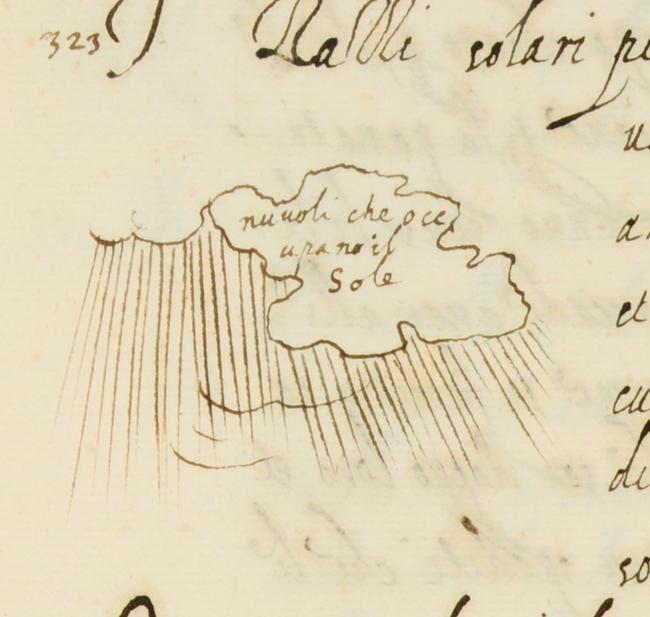 323) Razzi solari pe
u
nuuoli che occ
upano il
Sole
a
et
cu
di
so